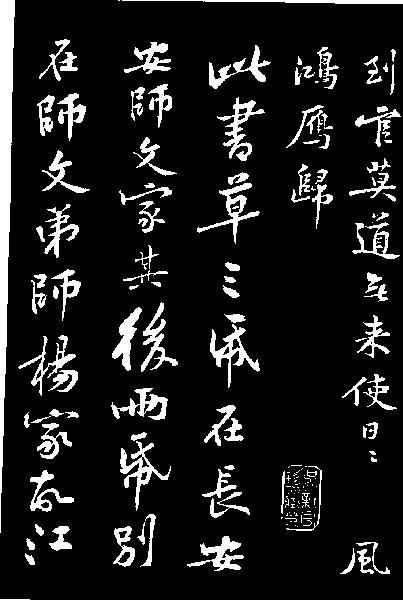 到官莫道无来使日〻風
鴻鴈歸
此書草三帋在長安
安師文家其後兩帋別
在師文弟師楊家故江〻